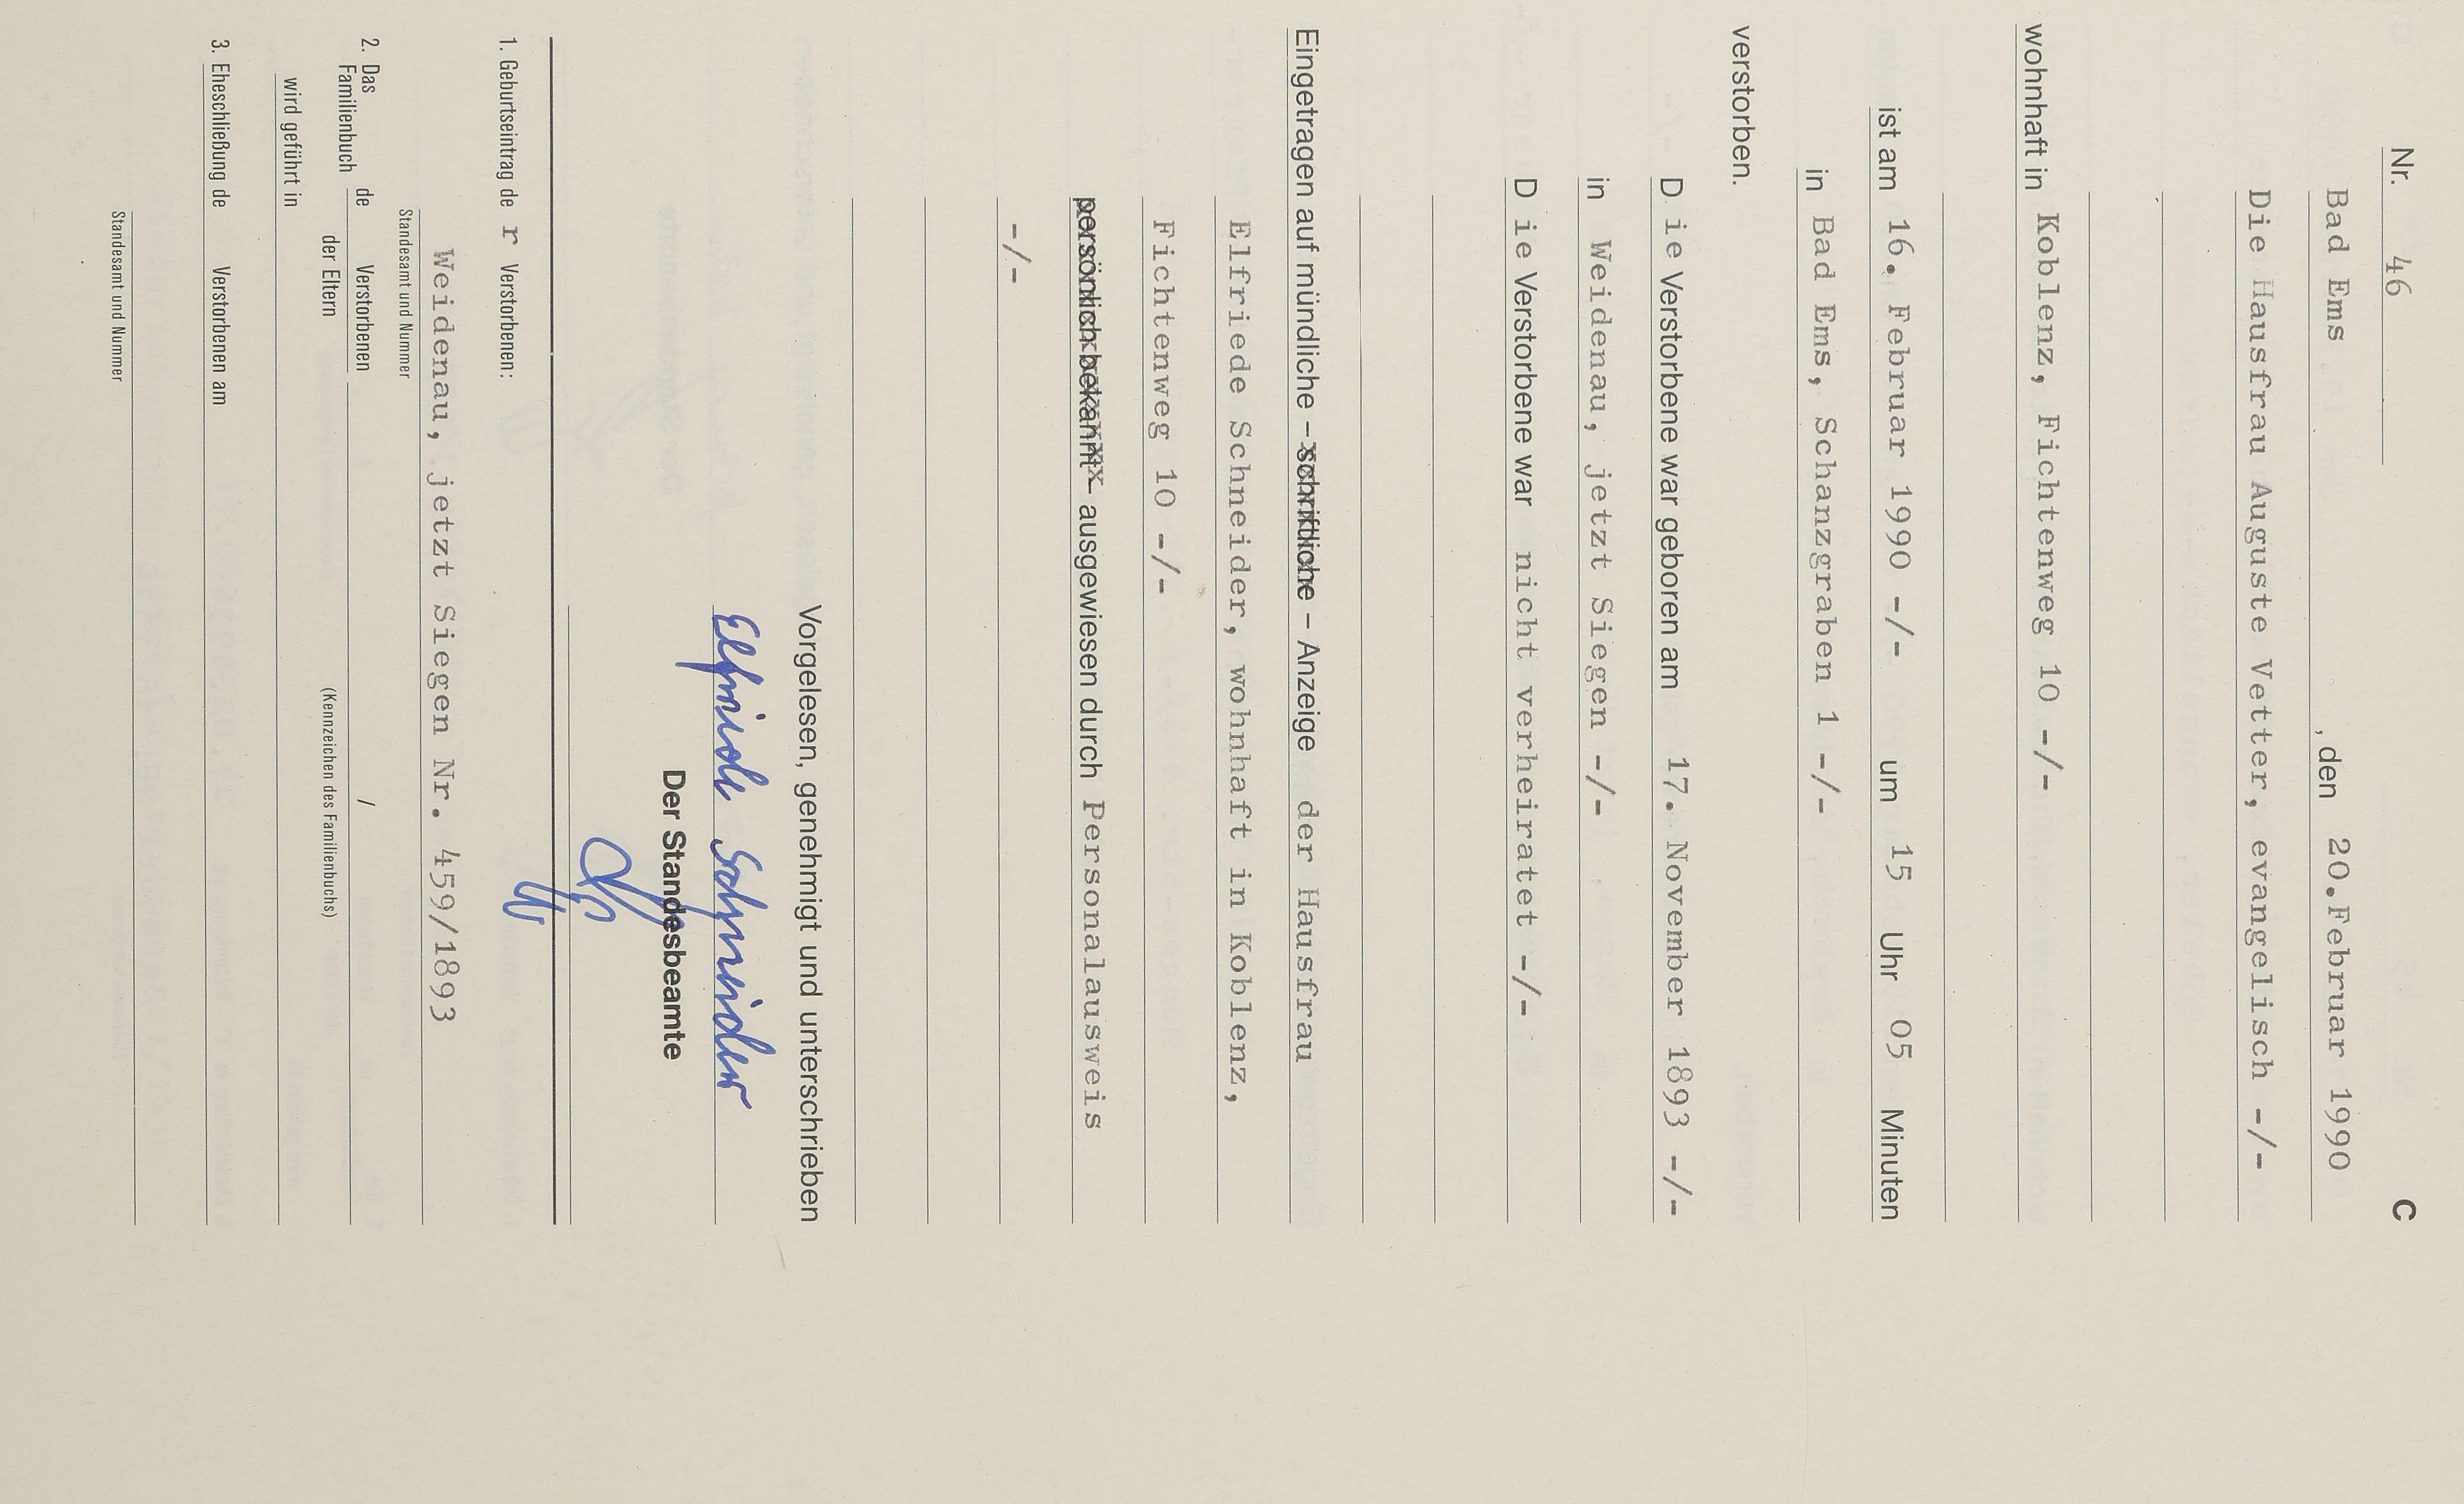 Nr. 46 C
Bad Ems , den 20.Februar 1990
Die Hausfrau Auguste Vetter, evangelisch -/-
wohnhaft in Koblenz, Fichtenweg 10 -/-
ist am 16. Februar 1990 -/- um 15 Uhr 05 Minuten
in Bad Ems, Schanzgraben 1 -/-
verstorben.
D ie Verstorbene war geboren am 17. November 1893 -/-
in Weidenau, jetzt Siegen -/-
D ie Verstorbene war nicht verheiratet -/-
Eingetragen auf mündliche – schriftliche – Anzeige der Hausfrau
Elfriede Schneider, wohnhaft in Koblenz,
Fichtenweg 10 -/-
persönlich bekannt – ausgewiesen durch Personalausweis
-/-
Vorgelesen, genehmigt und unterschrieben
Elfriede Schneider
Der Standesbeamte
1. Geburtseintrag de r Verstorbenen:
Weidenau, jetzt Siegen Nr. 459/1893
Standesamt und Nummer
2. Das Familienbuch de Verstorbenen /
der Eltern (Kennzeichen des Familienbuchs)
wird geführt in
3. Eheschließung de Verstorbenen am
Standesamt und Nummer